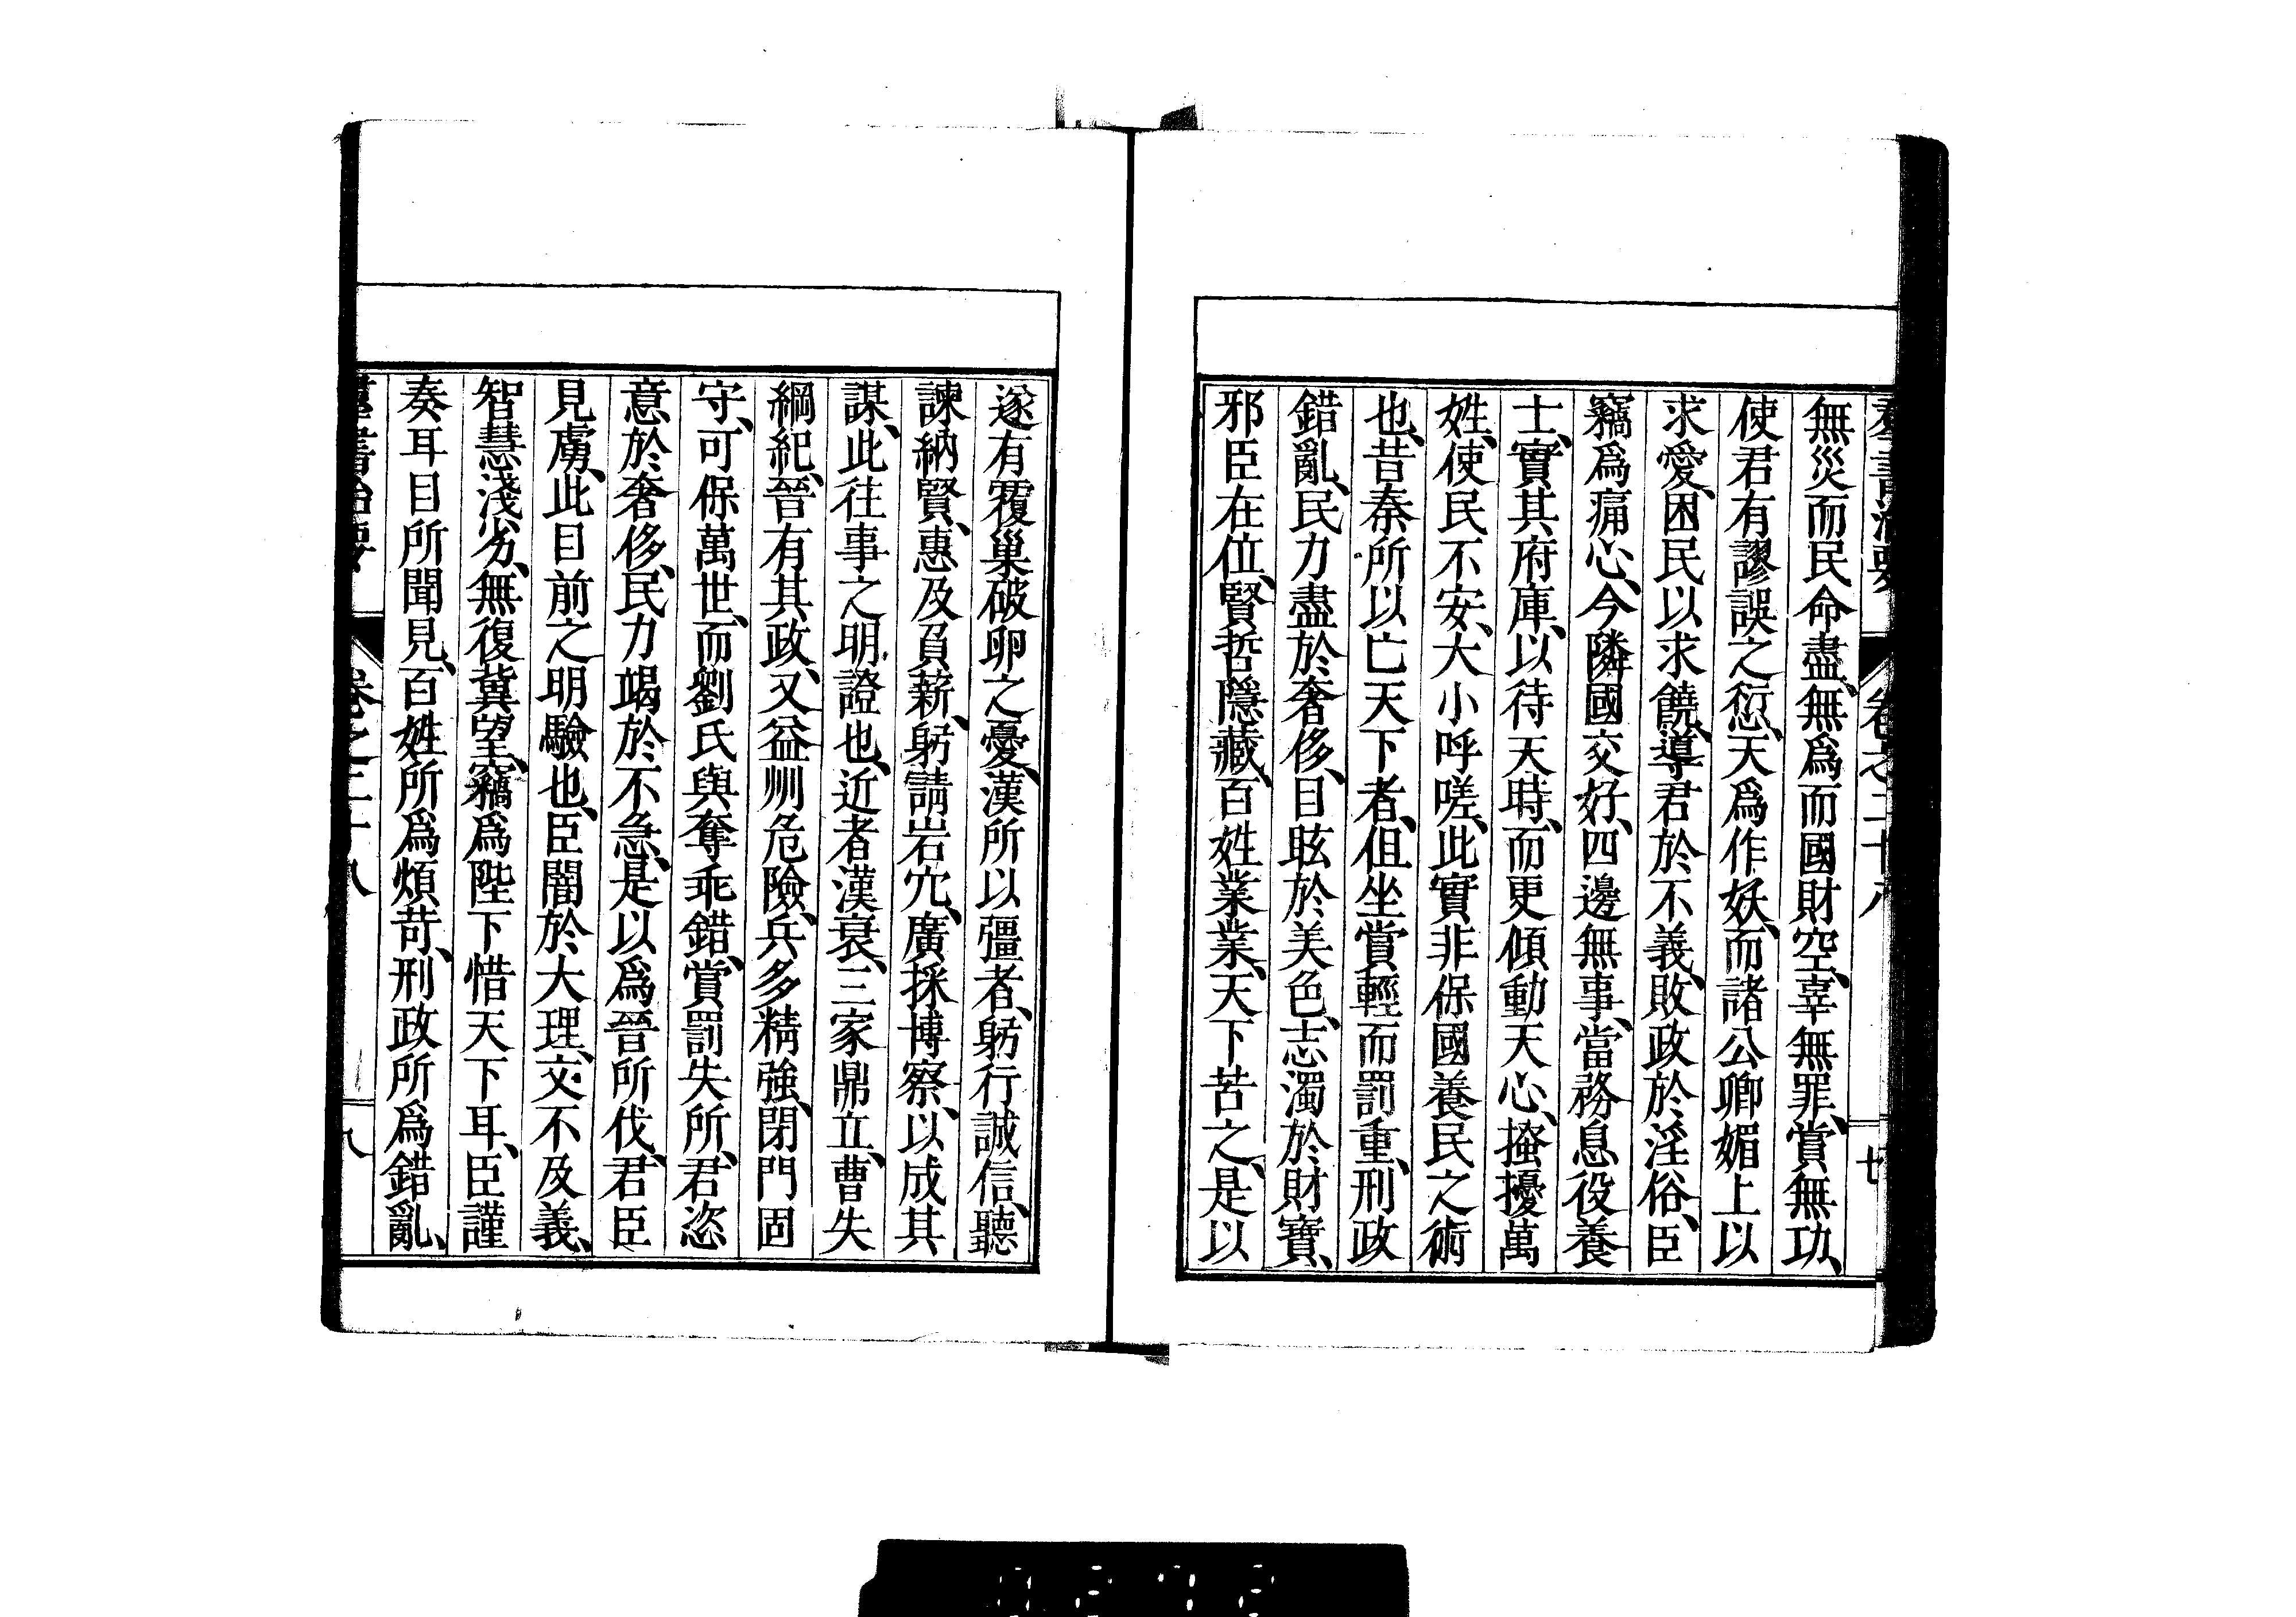 無災而民命盡、無爲而國財空、辜無罪、賞無功、
使君有謬誤之愆、天爲作妖、而諸公卿媚上以
求愛、困民以求饒、導君於不義、敗政於淫俗、臣
竊爲痛心、今隣國交好、四邊無事、當務息役養
士、實其府庫、以待天時、而更傾動天心、掻擾萬
姓、使民不安、大小呼嗟、此實非保國養民之術
也、昔秦所以亡天下者、但坐賞輕而罰重、刑政
錯亂、民力盡於奢侈、目眩於美色、志濁於財寶、
邪臣在位、賢哲隱藏、百姓業業、天下苦之、是以
遂有覆巢破卵之憂、漢所以彊者、躬行誠信、聽
諫納賢、惠及負薪、躬請岩穴、廣採博察、以成其
謀、此往事之明證也、近者漢衰、三家鼎立、曹失
綱紀、晉有其政、又益州危險、兵多精強、閉門固
守、可保萬世、而劉氏與奪乖錯、賞罰失所、君恣
意於奢侈、民力竭於不急、是以爲晉所伐、君臣
見虜、此目前之明驗也、臣闇於大理、文不及義、
智慧淺劣、無復冀望、竊爲陛下惜天下耳、臣謹
奏耳目所聞見、百姓所爲煩苛、刑政所爲錯亂、